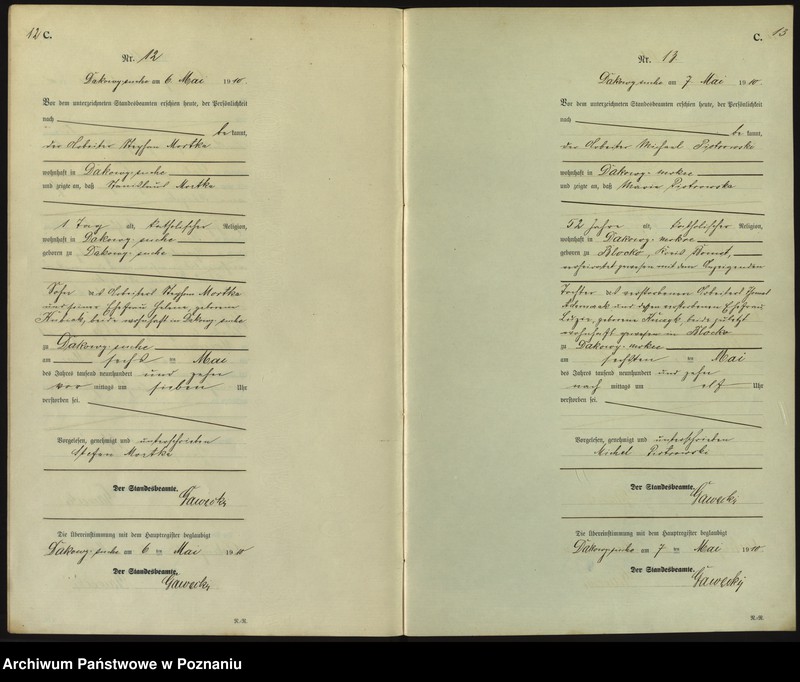 12 C.
Nr. 12
Dakowy-suche am 6 Mai 1910.
Vor dem unterzeichneten Standesbeamten erschien heute, der Persönlichkeit
nach
be kannt,
der Arbeiter Stephan Mostka
wohnhaft in Dakowy-suche
und zeigte an, daß Stanislaus Mostka
1 Tag alt, katholischer Religion,
wohnhaft in Dakowy-suche
geboren zu Dakowy-suche
Sohn des Arbeiters Stephan Mostka
und seiner Ehefrau Helene, geborene
beide wohnhaft in Dakowy-suche
zu Dakowy-suche
am sechsten Mai
des Jahres tausend neunhundert und zehn
vor mittags um sieben Uhr
verstorben sei.
Vorgelesen, genehmigt und unterschrieben
Stefan Mostka
Der Standesbeamte.
Gawecki
Die Übereinstimmung mit dem Hauptregister beglaubigt
Dakowy-suche am 6 ten Mai 1910
Der Standesbeamte.
Gawecki
R.-R.
C. 13
Nr. 13
Dakowy-suche am 7 Mai 1910.
Vor dem unterzeichneten Standesbeamten erschien heute, der Persönlichkeit
nach
be kannt,
der Arbeiter Michael Piotrowski
wohnhaft in Dakowy-mokre
und zeigte an, daß Maria Piotrowska
52 Jahre alt, katholischer Religion,
wohnhaft in Dakowy-mokre
geboren zu Blocko, Kreis
verheiratet gewesen mit dem Anzeigenden
Tochter des verstorbenen Arbeiters
und dessen verstorbenen Ehefrau
geborene beide zuletzt
wohnhaft gewesen in Blocko
zu Dakowy-mokre
am sechsten ten Mai
des Jahres tausend neunhundert und zehn
nach mittags um elf Uhr
verstorben sei.
Vorgelesen, genehmigt und unterschrieben
Michał Piotrowski
Der Standesbeamte.
Gawecki
Die Übereinstimmung mit dem Hauptregister beglaubigt
Dakowy-suche am 7 ten Mai 1910.
Der Standesbeamte.
Gawecki
R.-R.
Archiwum Państwowe w Poznaniu